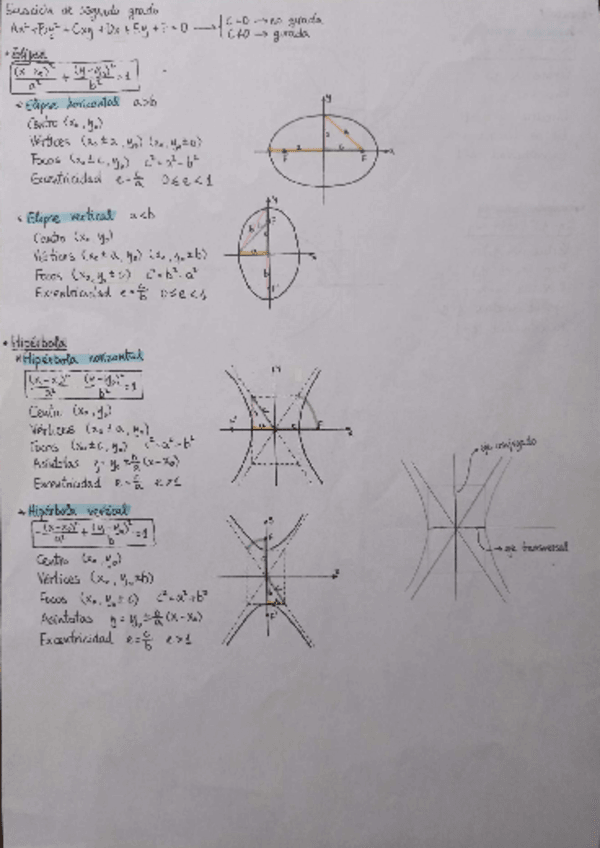 Ecuación de segundo grado
Ax² + By² + Cxy + Dx + Ey + F = 0 → { C=0 → no girada
C≠0 → girada
• Elipse
(x-x₀)²/a² + (y-y₀)²/b² = 1
Elipse horizontal a>b
Centro (x₀, y₀)
Vértices (x₀ ± a, y₀) (x₀, y₀ ± b)
Focos (x₀ ± c, y₀) c² = a² - b²
Excentricidad e = c/a 0 ≤ e < 1
Elipse vertical a<b
Centro (x₀, y₀)
Vértices (x₀ ± a, y₀) (x₀, y₀ ± b)
Focos (x₀, y₀ ± c) c² = b² - a²
Excentricidad e = c/b 0 ≤ e < 1
• Hipérbola
Hipérbola horizontal
(x-x₀)²/a² - (y-y₀)²/b² = 1
Centro (x₀, y₀)
Vértices (x₀ ± a, y₀)
Focos (x₀ ± c, y₀)
Asíntotas
Excentricidad e = c/a e > 1
eje conjugado
eje transversal
Hipérbola vertical
-(x-x₀)²/a² + (y-y₀)²/b² = 1
Centro (x₀, y₀)
Vértices (x₀, y₀ ± b)
Focos (x₀, y₀ ± c) c² = a² + b²
Asíntotas
Excentricidad e = c/b e > 1